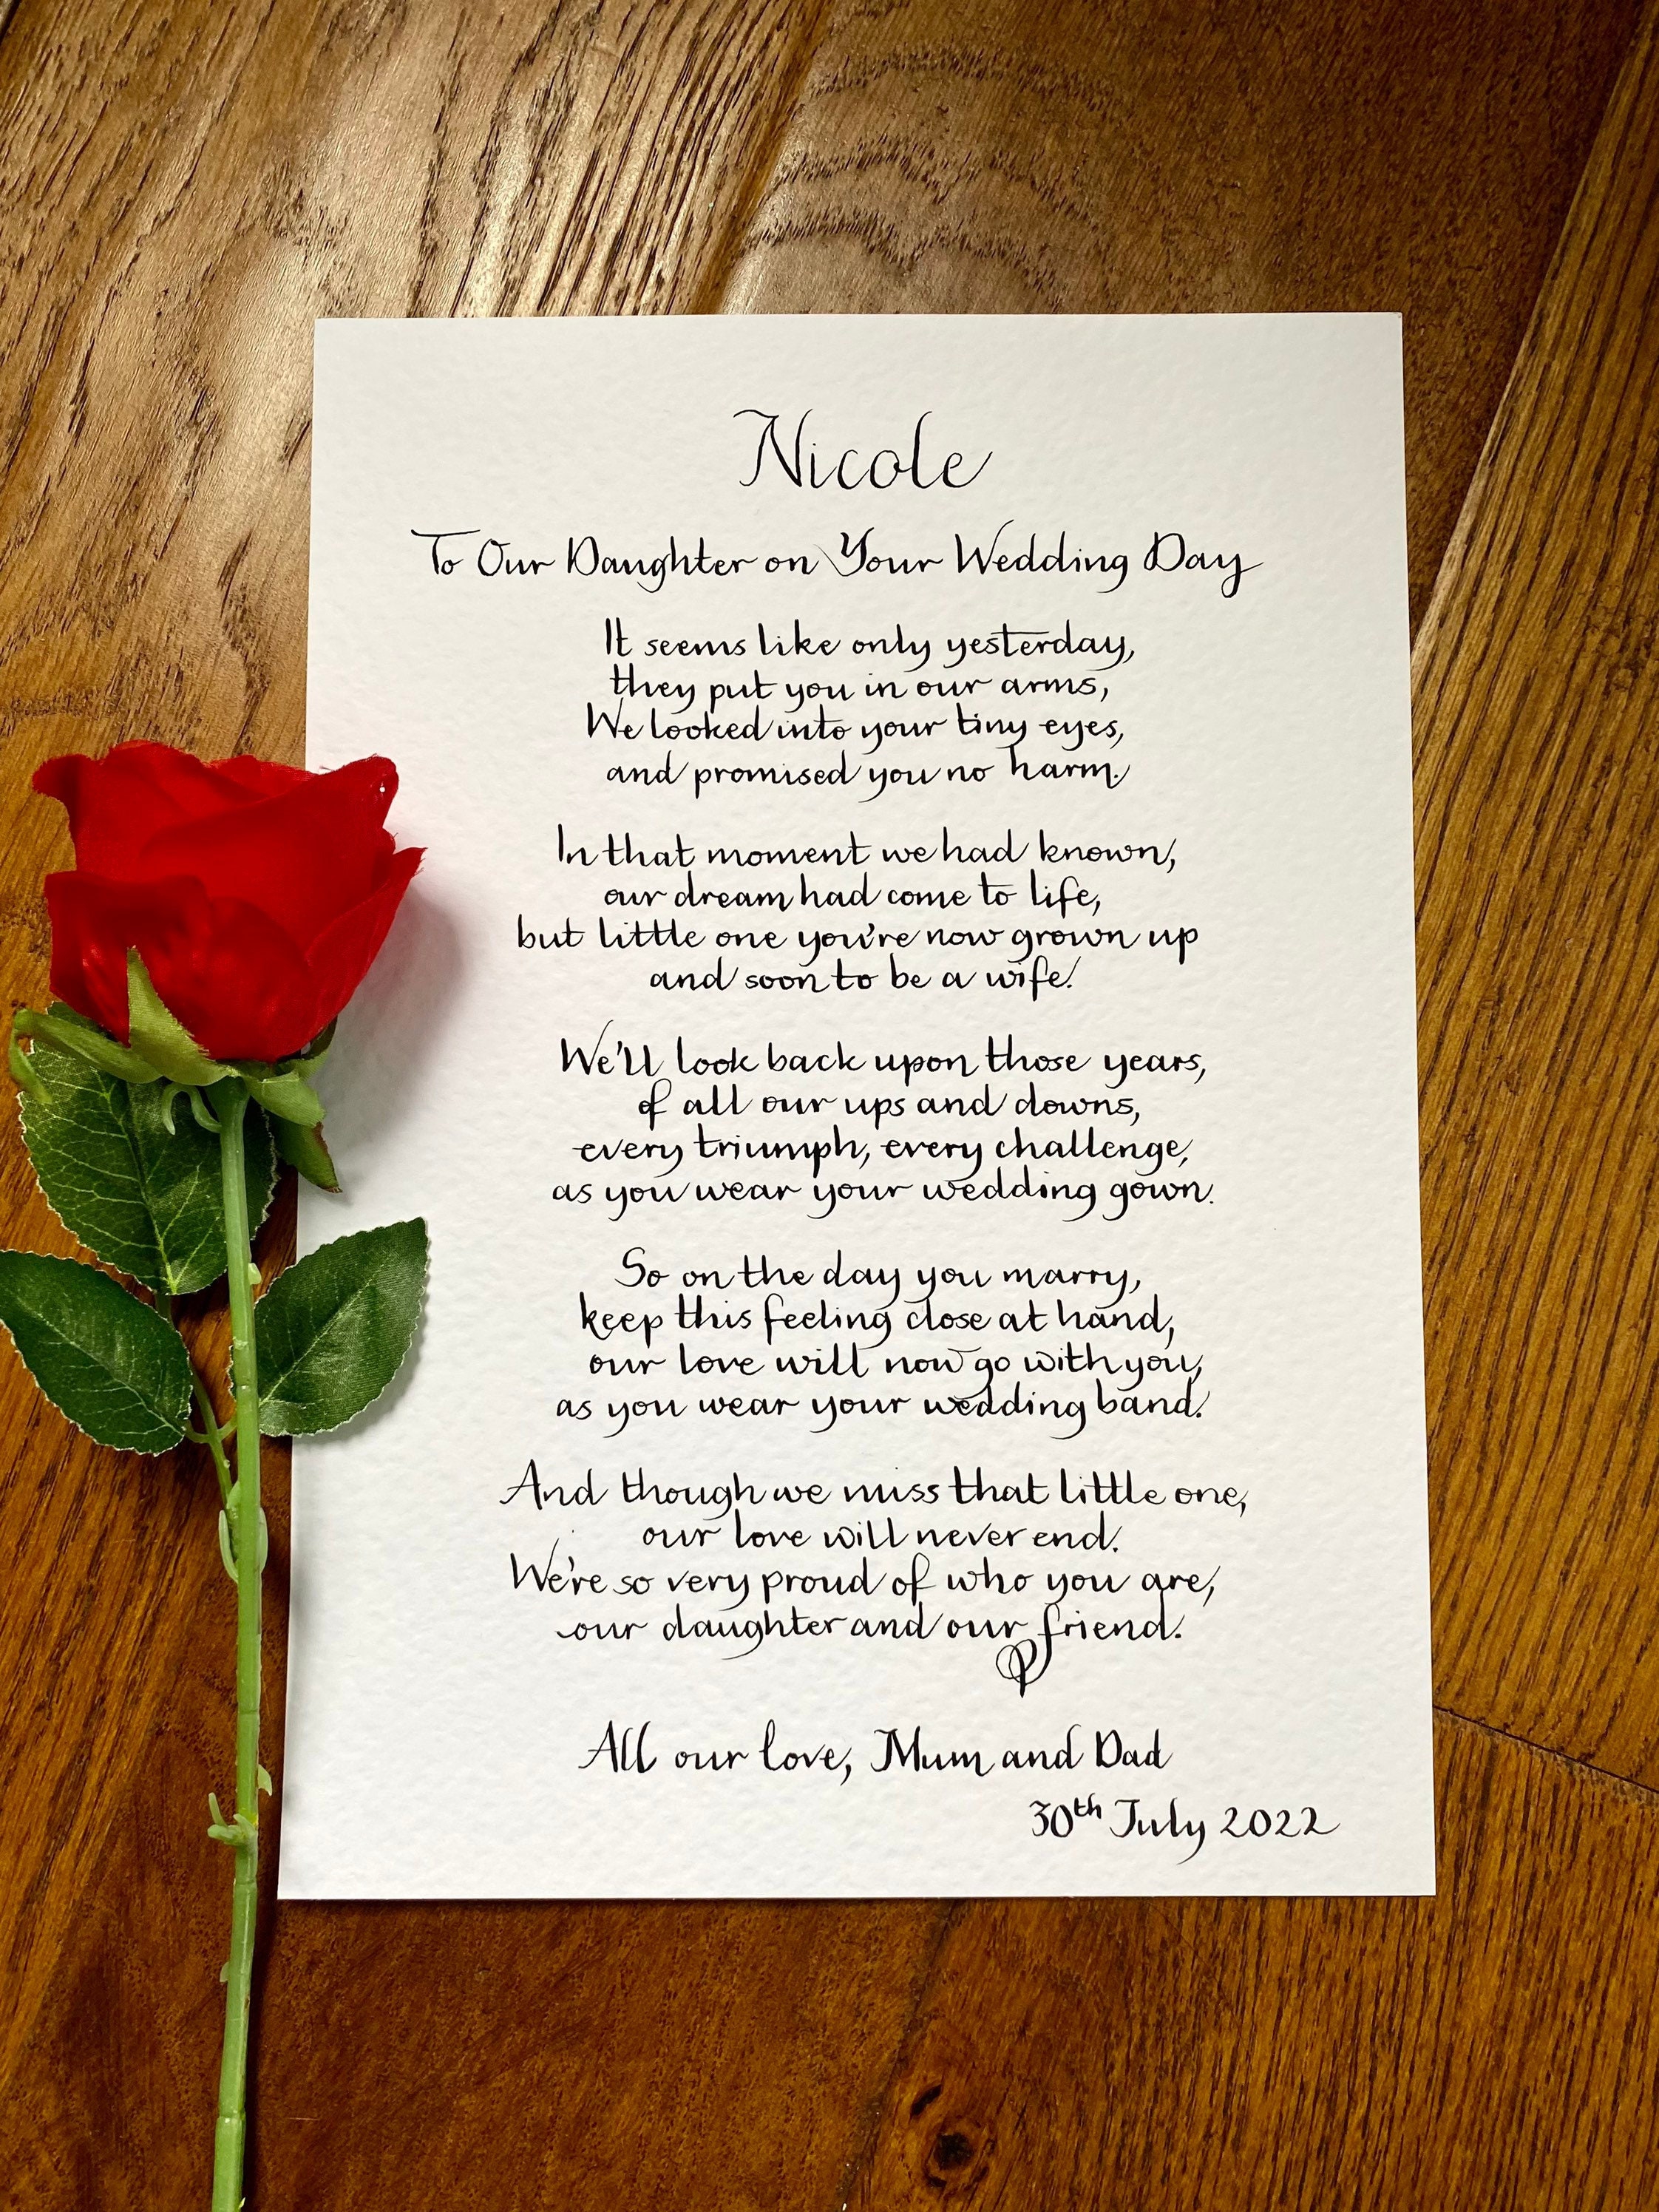 Nicole
To Our Daughter on Your Wedding Day
It seems like only yesterday,
they put you in our arms,
We looked into your tiny eyes,
and promised you no harm.
In that moment we had known,
our dream had come to life,
but little one you're now grown up
and soon to be a wife.
We'll look back upon those years,
of all our ups and downs,
every triumph, every challenge,
as you wear your wedding gown.
So on the day you marry,
keep this feeling close at hand,
our love will now go with you,
as you wear your wedding band.
And though we miss that little one,
our love will never end.
We're so very proud of who you are,
our daughter and our friend.
All our love, Mum and Dad
30th July 2022